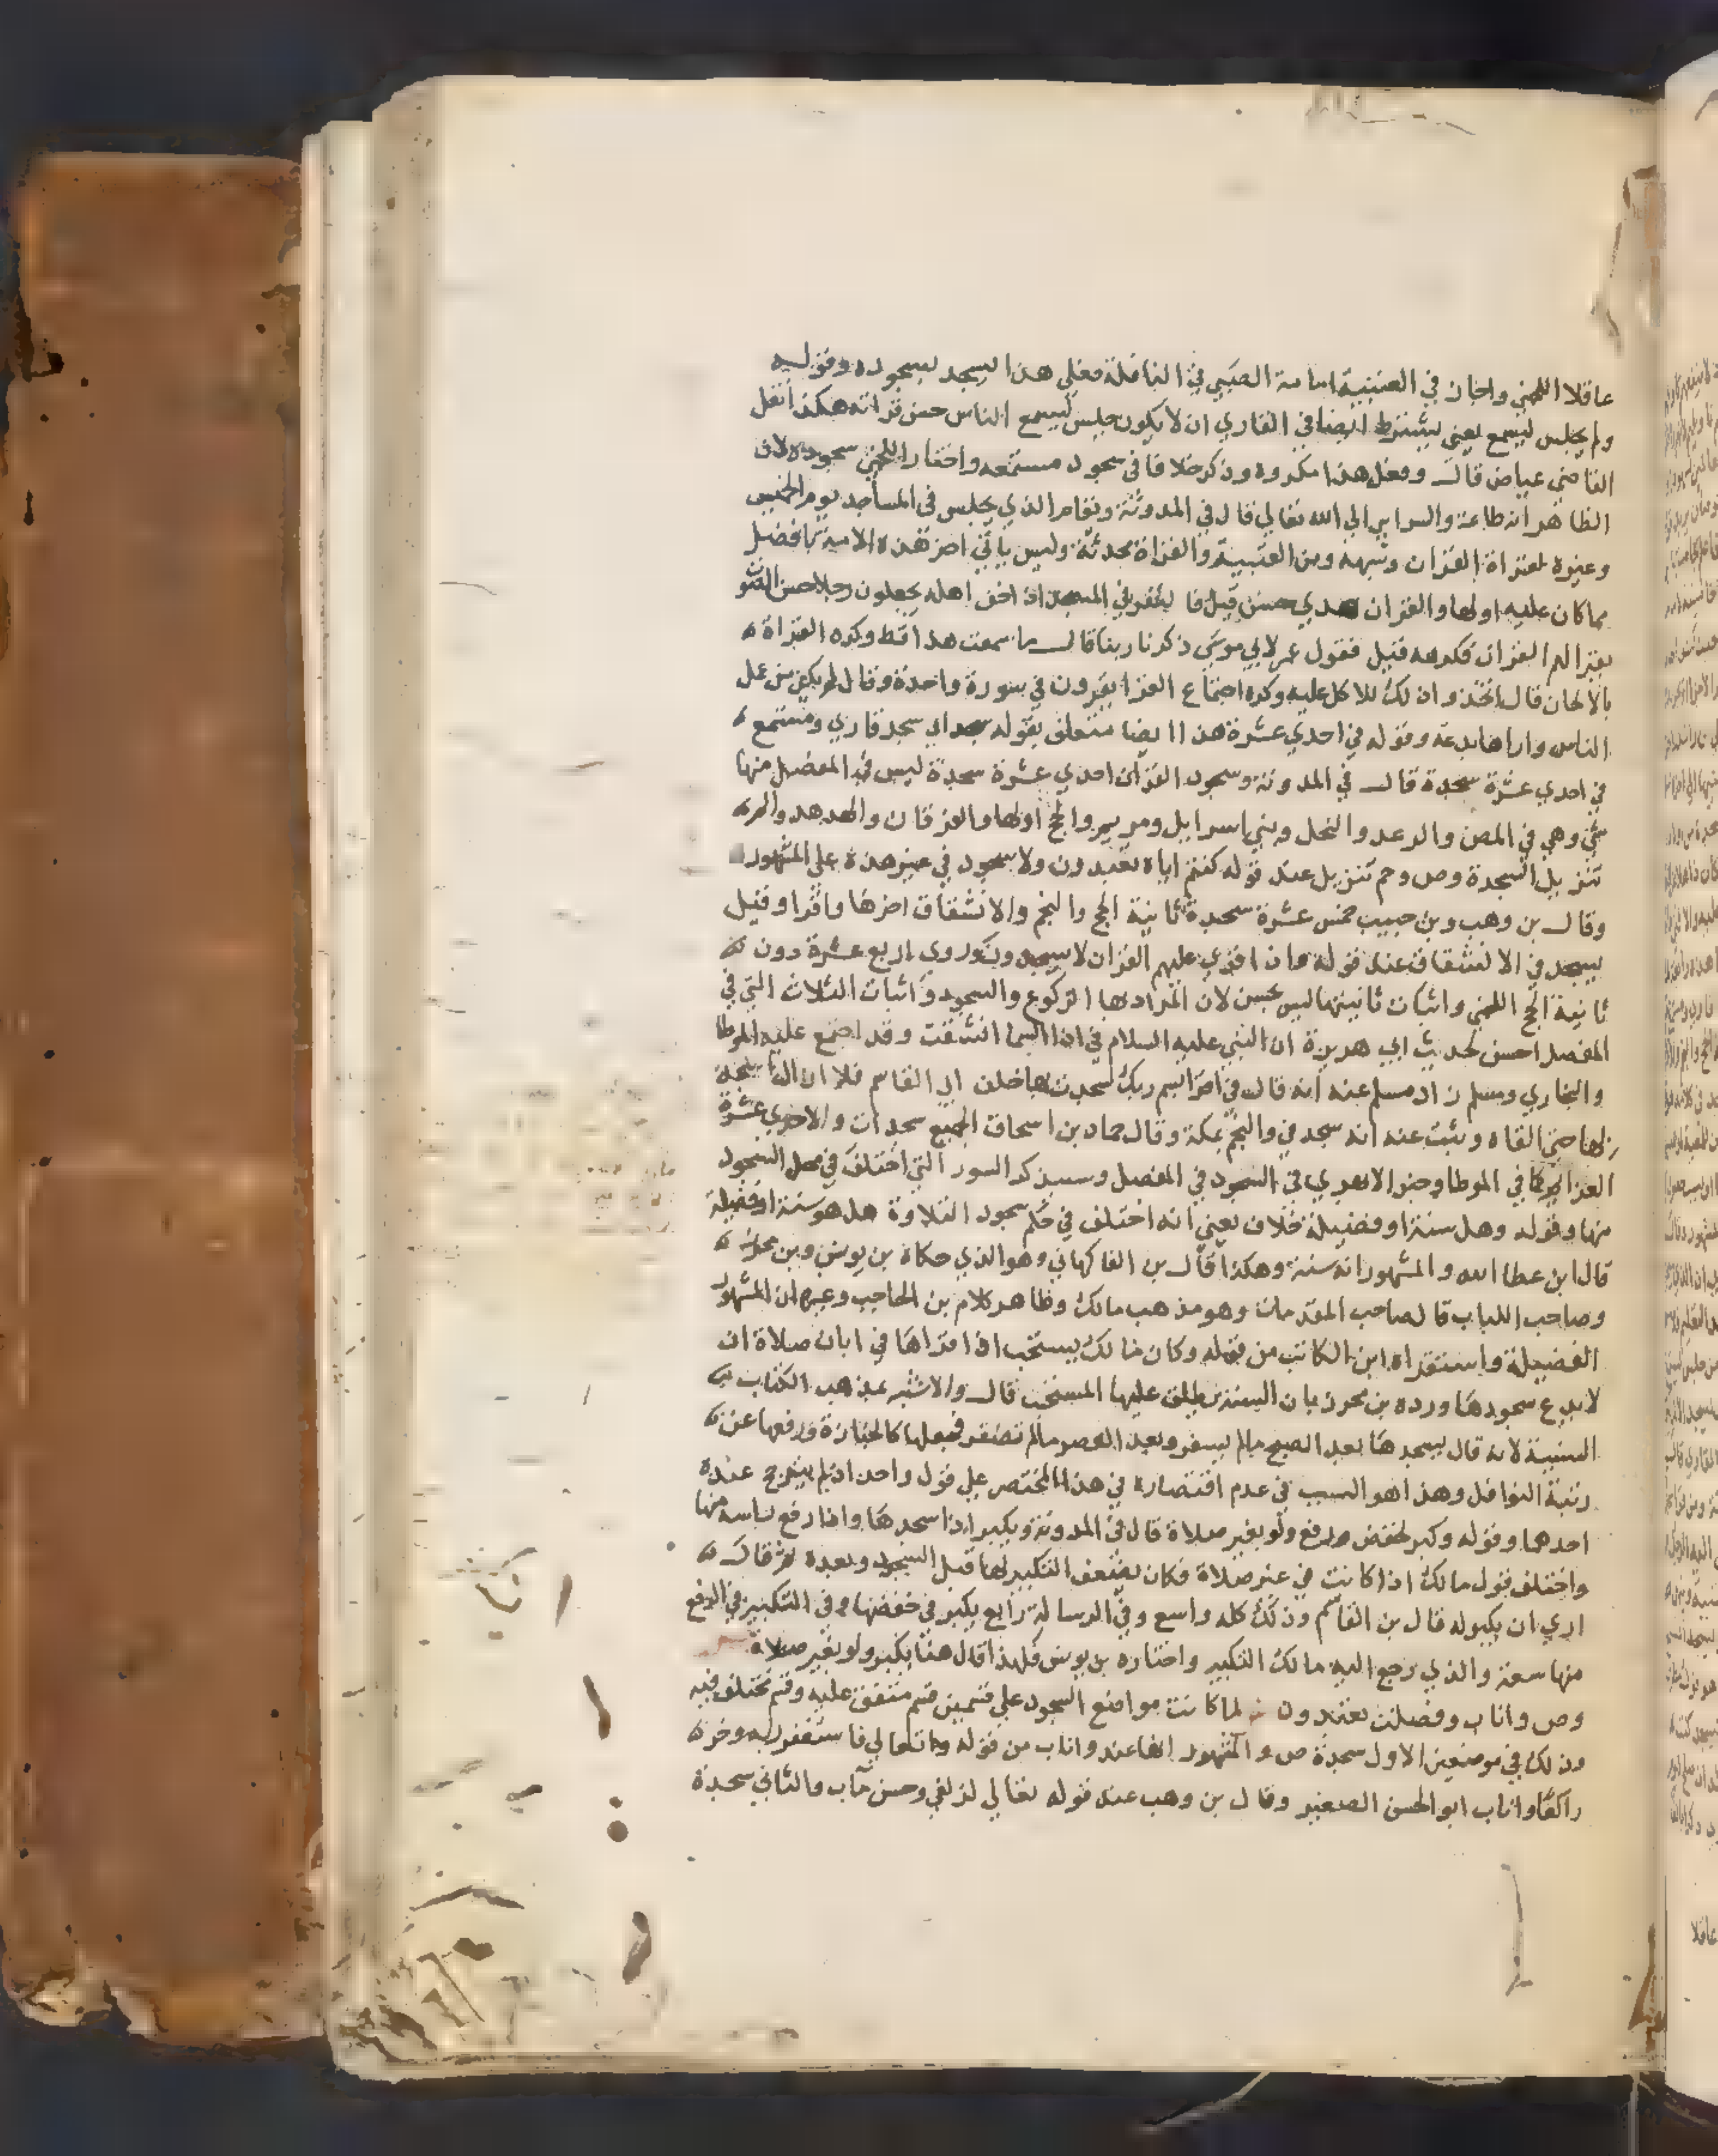 عاقلا اللخمي واجاز في العتبية امامة الصبي في النافلة فعلى هذا يسجد لسجوده وقوله
ولم يجلس ليسمع يعني يشترط ايضا في القاري ان لا يكون جلس ليسمع الناس حسن قراته هكذا نقل
القاضي عياض قال وفعل هذا مكروه وذكر خلافا في سجود مستمعه واختار اللخمي سجوده لان
الظاهر انه طاعة والسراير الي الله تعالي قال في المدونة ويقام الذي يجلس في المساجد يوم الخميس
وغيره لقراة القران وشبهه ومن العتبية والقراة محدثة وليس ياتي اخر هذه الامة بافضل
مما كان عليه اولها والقران حسن قيل فالنفر في المسجد اذا خف اهله يجعلون رجلا حسن الصوت
يقرا لهم القران فكرهه قيل فقول عمر لابي موسي ذكرنا ربنا قال ما سمعت هذا قط وكره القراة
بالالحان قال اتخذوا ذلك للاكل عليه وكره اجتماع القرا يقرون في سورة واحدة وقال لم يكن من عمل
الناس واراها بدعة وقوله في احدي عشرة هذا ايضا متعلق بقوله سجد اي سجد قاري ومستمع
في احدي عشرة سجدة قال في المدونة وسجود القران احدي عشرة سجدة ليس في المفصل منها
شي وهي في المص والرعد والنحل وبني اسرايل ومريم والحج اولها والفرقان والهدهد والم
تنزيل السجدة وص وحم تنزيل عند قوله كنتم اياه تعبدون ولا سجود في غير هذه علي المشهور
وقال بن وهب وبن حبيب خمس عشرة سجدة ثانية الحج والنجم والانشقاق اخرها واقرا وقيل
يسجد في الانشقاق عند قوله واذا قري عليهم القران لا يسجدون وروي اربع عشرة دون
ثانية الحج اللخمي واثبات ثانيتها ليس بحسن لان المراد بها الركوع والسجود واثبات الثلاث التي في
المفصل احسن لحديث ابي هريرة ان النبي عليه السلام في اذا السما انشقت وقد اجتمع عليه الموطا
والبخاري ومسلم زاد مسلم عنه انه قال في اقرا باسم ربك سجدت بها خلف ابي القاسم فلا ازال اسجد
بها حتي القاه وثبت عنه انه سجد في والنجم بمكة وقال حماد بن اسحاق الجميع سجدات والاحدي عشرة
العزايم كما في الموطا وحنو الابهري في السجود في المفصل وسيذكر السور التي اختلف في محل السجود
منها وقوله وهل سنة او فضيلة خلاف يعني انه اختلف في حكم سجود التلاوة هل هو سنة او فضيلة
قال ابن عطا الله والمشهور انه سنة وهكذا قال بن الفاكهاني وهو الذي حكاه بن يونس وبن محرز
وصاحب اللباب قال صاحب المقدمات وهو مذهب مالك وظاهر كلام بن الحاجب وغيره ان المشهور
الفضيلة واستقراه ابن الكاتب من قوله وكان مالك يستحب اذا قراها في ابان صلاة ان
لا يدع سجودها ورده بن محرز بان السنة يطلق عليها المستحب قال والاشبه بمذهب الكتاب
السنية لانه قال يسجدها بعد الصبح مالم يسفر وبعد العصر مالم تصفر فجعلها كالجنازة ورفعها عن
رتبة النوافل وهذا هو السبب في عدم اقتصاره في هذا المختصر علي قول واحد اذ لم يترجح عنده
احدها وقوله وكبر لخفض ورفع ولو بغير صلاة قال في المدونة ويكبر اذا سجدها واذا رفع راسه منها
واختلف قول مالك اذا كانت في غير صلاة فكان يضعف التكبير لها قبل السجود وبعده ثم قال
اري ان يكبر له قال بن القاسم وذلك كله واسع وفي الرسالة رابع يكبر في خفضها وفي التكبير في الرفع
منها سعة والذي رجع اليه مالك التكبير واختاره بن يونس فلهذا قال هنا يكبر ولو بغير صلاة
وص واناب وفصلت تعبدون لما كانت مواضع السجود علي قسمين قسم متفق عليه وقسم مختلف فيه
وذلك في موضعين الاول سجدة ص والمشهور انها عند واناب من قوله تعالي فاستغفر ربه وخر
راكعا واناب ابو الحسن الصغير وقال بن وهب عند قوله تعالي لزلفي وحسن مآب والثاني سجدة